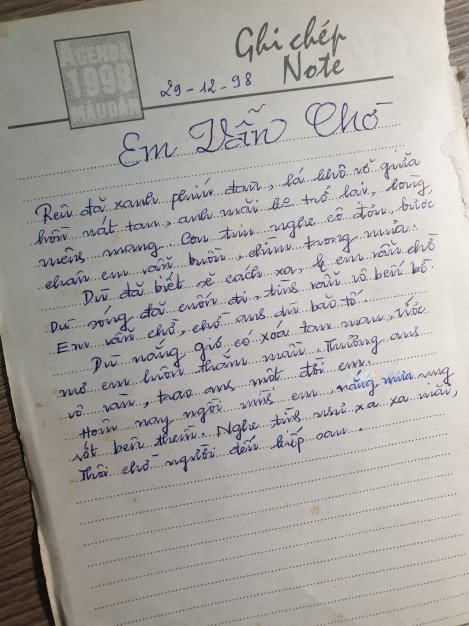 AGENDA
1998
MẬU DẦN
Ghi chép
Note
29-12-98
Em Vẫn Chờ
Rêu đã xanh phiến đau, lá khô vỡ giữa
hồn nát tan, anh mãi k trở lại, lòng
mênh mang. Con tim nghe cô đơn, bước
chân em vẫn buồn, chìm trong mưa.
Dù đã biết sẽ cách xa, em vẫn chờ
Dù sóng đã cuốn đi, tình vẫn vỗ bên bờ
Em vẫn chờ, chờ anh dù bão tố.
Dù nắng gió có xoá tan mau, ước
mơ em luôn thắm mãi. Thương anh
vô vàn, trao anh một đời em
Hôm nay ngồi mình em, nắng mưa
rớt bên thềm. Nghe tình như xa xa mãi,
Thôi chờ người đến kiếp sau.